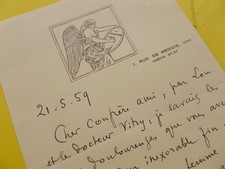 21.5.59
Cher Confrère ami, par Leu
et le docteur Vitry, je savais le
douloureuse que vous ave
inexorable fin
femme